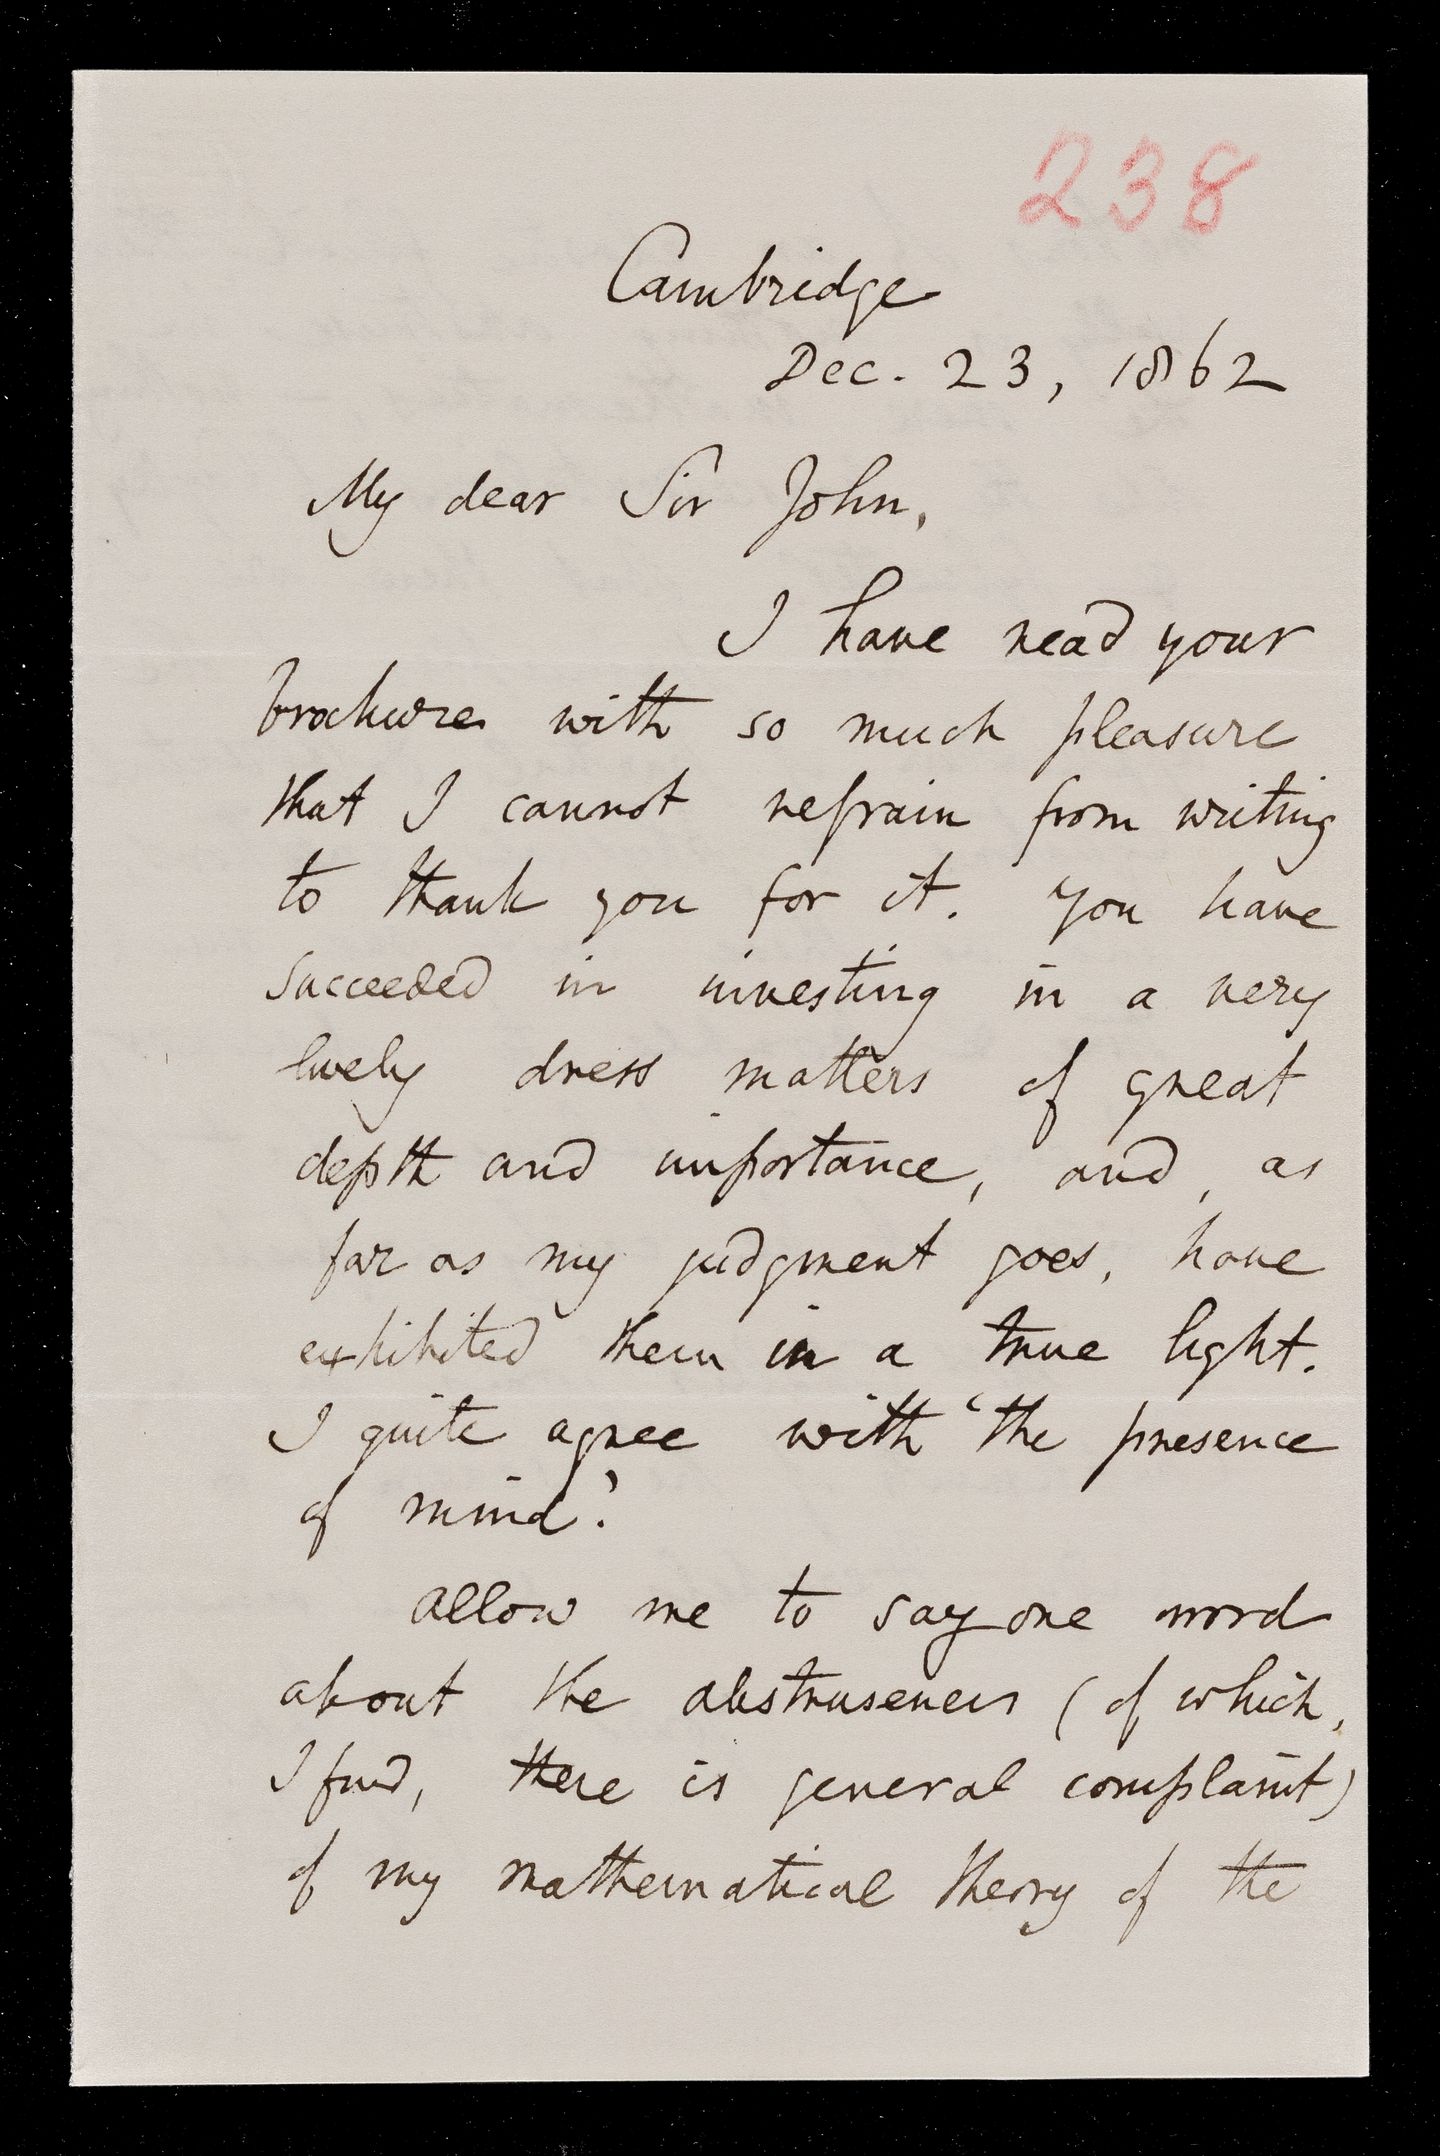 238
Cambridge
Dec. 23, 1862
My dear Sir John,
I have read your
brochure with so much pleasure
that I cannot refrain from writing
to thank you for it. You have
succeeded in investing in a very
lively dress matters of great
depth and importance, and, as
far as my judgment goes, have
exhibited them in a true light.
I quite agree with 'the presence
of mind'.
Allow me to say one word
about the abstruseness (of which,
I find, there is general complaint)
of my mathematical theory of the